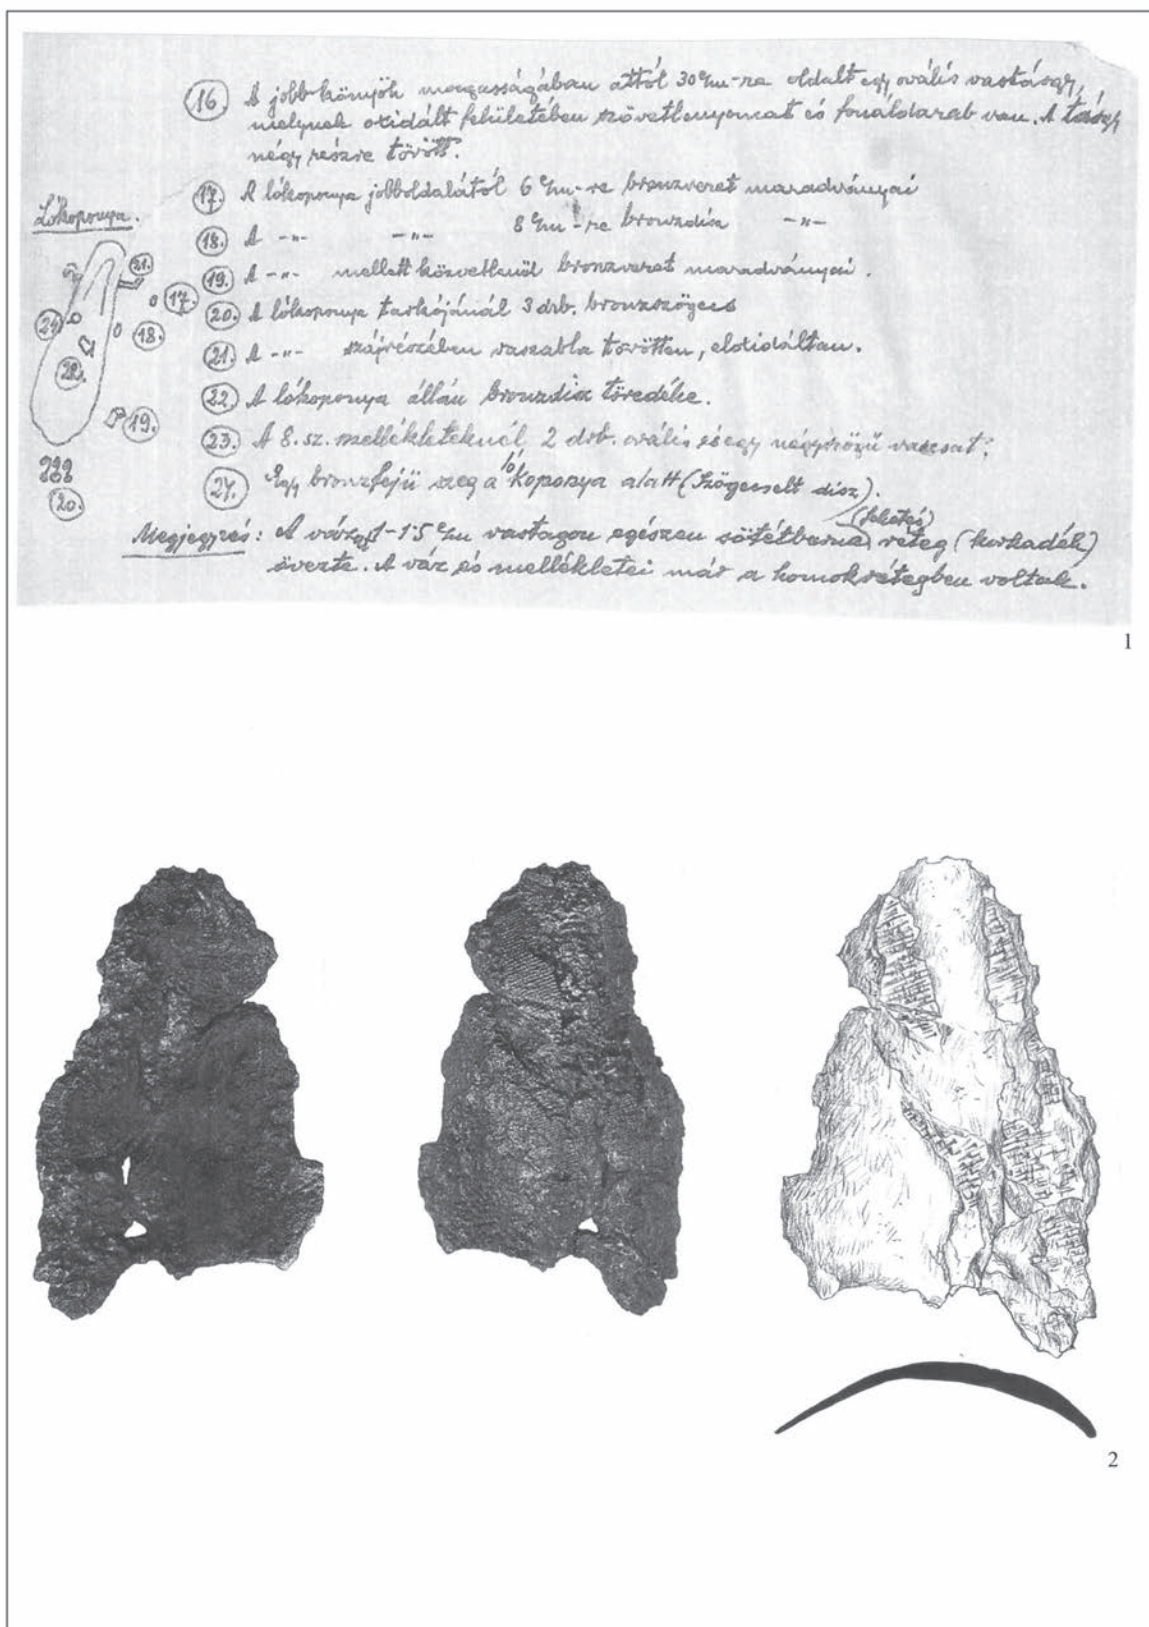 16. A jobb könyök magasságában attól 30 c/m-re oldalt egy ovális vastárgy,
melynek oxidált felületében szövetlenyomat és fonáldarab van. A tárgy
négy részre törött.
17. A lókoponya jobboldalától 6 c/m-re bronzveret maradványai
Lókoponya.
18. A -"- -"- 8 c/m-re bronzdísz -"-
19. A -"- mellett közvetlenül bronzveret maradványai.
20. A lókoponya tarkójánál 3 drb. bronzszögecs
21. A -"- szájrészében vaszabla törötten, eloxidáltan.
22. A lókoponya állán bronzdísz töredéke.
23. A 8. sz. mellékleteknél 2 drb. ovális és egy négyszögű vascsat.
24. Egy bronzfejű szeg a ló koponya alatt (Szögecselt dísz).
21.
17.
24.
18.
22.
19.
20.
(fekete)
Megjegyzés: A vázat 1-1.5 c/m vastagon egészen sötétbarna réteg (korhadék)
övezte. A váz és mellékletei már a homokrétegben voltak.
1
2